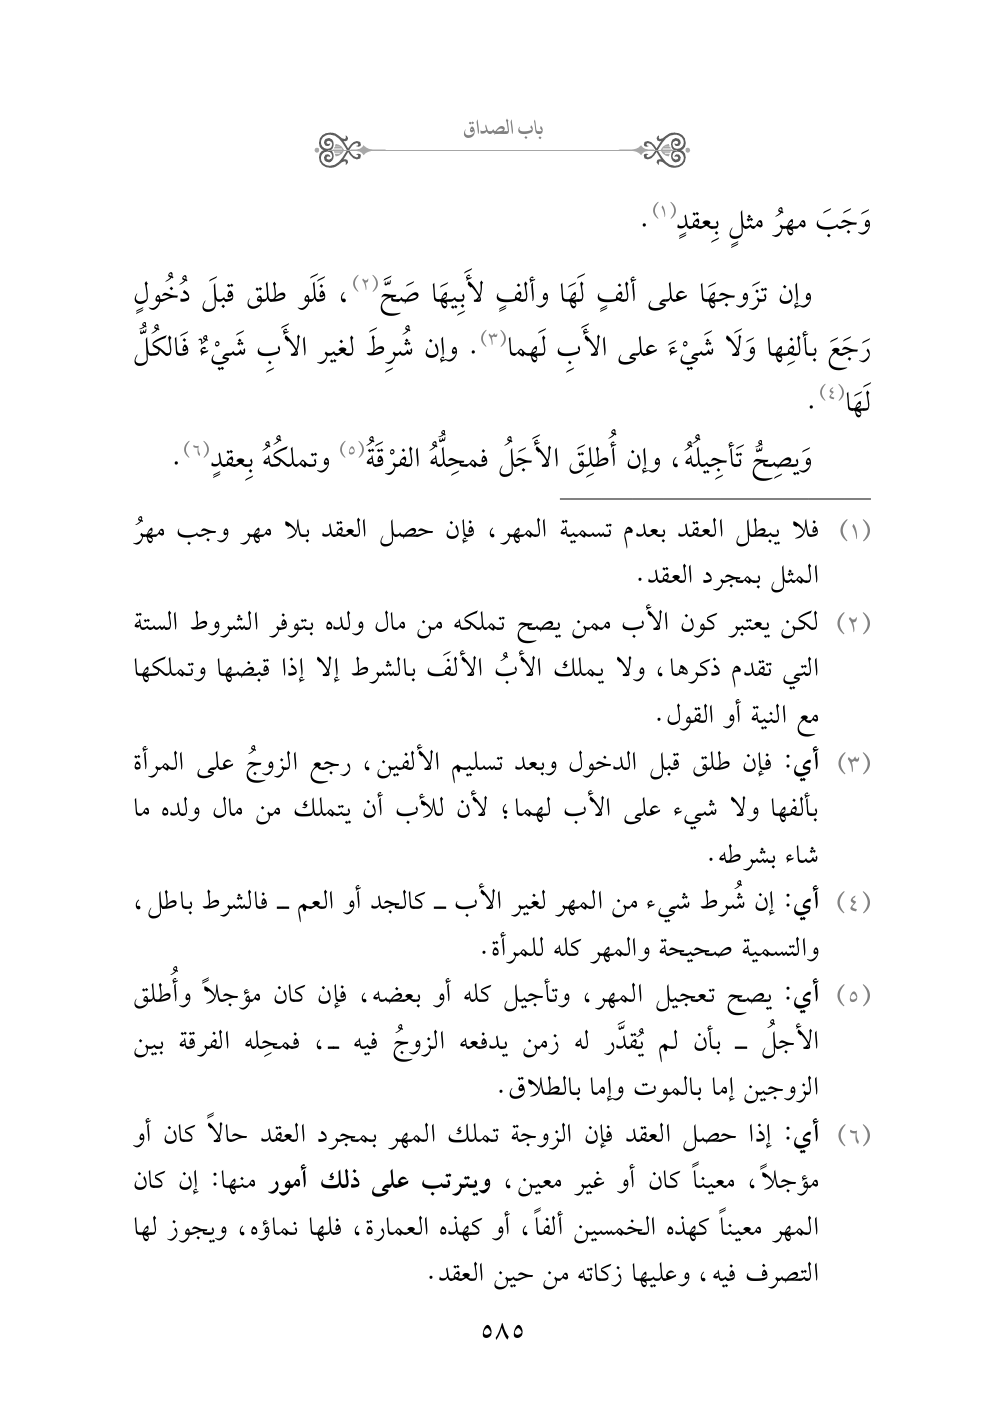 باب الصداق
وَجَبَ مهرُ مثلٍ بِعقدٍ(١).
وإن تزَوجهَا على ألفٍ لَهَا وألفٍ لأَبِيهَا صَحَّ(٢)، فَلَو طلق قبلَ دُخُولٍ
رَجَعَ بألفِها وَلَا شَيْءَ على الأَبِ لَهما(٣). وإن شُرِطَ لغير الأَبِ شَيْءٌ فَالكُلُّ
لَهَا(٤).
وَيصِحُّ تَأجِيلُهُ، وإن أُطلِقَ الأَجَلُ فمحِلُّهُ الفرْقَةُ(٥) وتملكُهُ بِعقدٍ(٦).
(١) فلا يبطل العقد بعدم تسمية المهر، فإن حصل العقد بلا مهر وجب مهرُ
المثل بمجرد العقد.
(٢) لكن يعتبر كون الأب ممن يصح تملكه من مال ولده بتوفر الشروط الستة
التي تقدم ذكرها، ولا يملك الأبُ الألفَ بالشرط إلا إذا قبضها وتملكها
مع النية أو القول.
(٣) أي: فإن طلق قبل الدخول وبعد تسليم الألفين، رجع الزوجُ على المرأة
بألفها ولا شيء على الأب لهما؛ لأن للأب أن يتملك من مال ولده ما
شاء بشرطه.
(٤) أي: إن شُرط شيء من المهر لغير الأب ــ كالجد أو العم ــ فالشرط باطل،
والتسمية صحيحة والمهر كله للمرأة.
(٥) أي: يصح تعجيل المهر، وتأجيل كله أو بعضه، فإن كان مؤجلاً وأُطلق
الأجلُ ــ بأن لم يُقدَّر له زمن يدفعه الزوجُ فيه ــ، فمحِله الفرقة بين
الزوجين إما بالموت وإما بالطلاق.
(٦) أي: إذا حصل العقد فإن الزوجة تملك المهر بمجرد العقد حالاً كان أو
مؤجلاً، معيناً كان أو غير معين، ويترتب على ذلك أمور منها: إن كان
المهر معيناً كهذه الخمسين ألفاً، أو كهذه العمارة، فلها نماؤه، ويجوز لها
التصرف فيه، وعليها زكاته من حين العقد.
٥٨٥